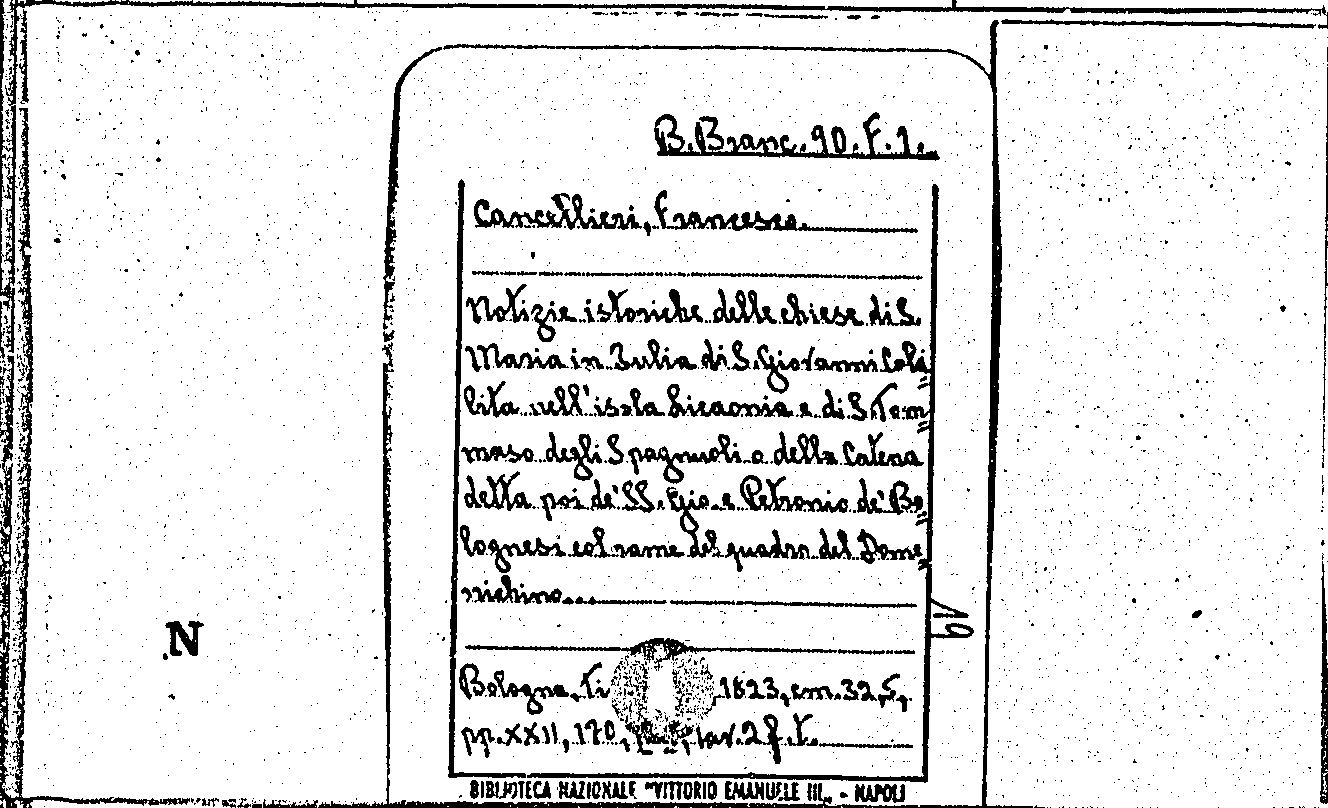 B. Branc. 90. F. 1.
Cancellieri, Francesco.
Notizie istoriche delle chiese di S.
Maria in Julia di S. Giovanni Cola
bita nell'isola Licaonia e di S. Tom
maso degli Spagnuoli o della Catena
detta poi de' SS. Gio. e Petronio de' Bo
lognesi col rame del quadro del Dome
nichino...
N
Bologna, Ti 1823, cm. 32,5,
pp. XXII, 170, tav. 2 f. t.
BIBLIOTECA NAZIONALE "VITTORIO EMANUELE III„ - NAPOLI